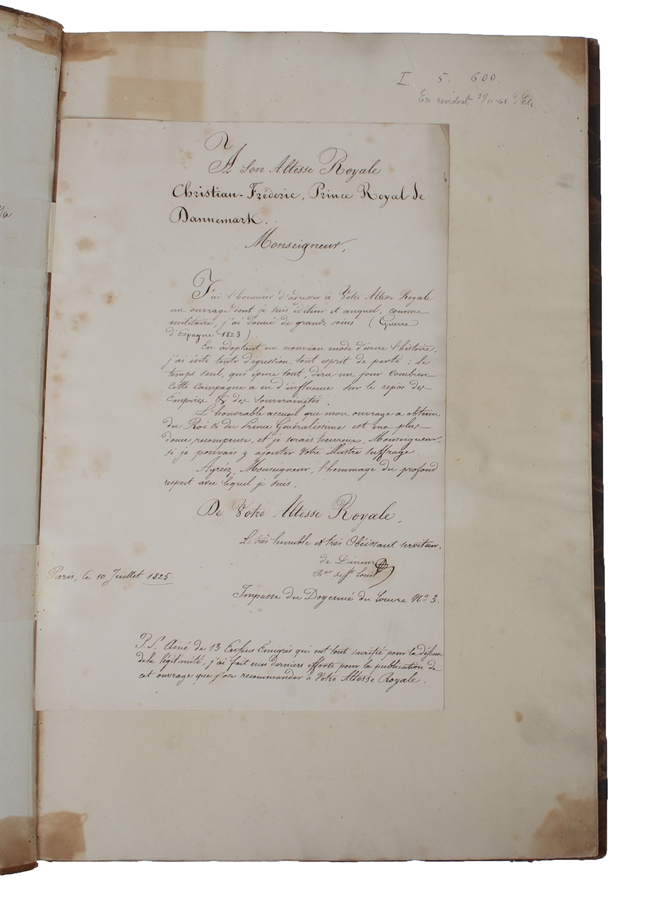 I 5. 600.
A Son Altesse Royale
Christian-Frédéric, Prince Royal de
Dannemark.
Monseigneur,
J'ai l'honneur d'adresser à Votre Altesse Royale
un ouvrage dont je suis éditeur et auquel, comme
militaire, j'ai donné de grands soins (Guerre
d'Espagne 1823)
En adoptant un nouveau mode d'écrire l'histoire,
j'ai évité toute digression, tout esprit de parti; le
temps seul, qui épure tout, dira un jour combien
cette campagne a eu d'influence sur le repos des
Empires & des Souverainetés.
L'honorable accueil que mon ouvrage a obtenu
du Roi & du Prince Généralissime est ma plus
douce récompense, et je serais heureux, Monseigneur,
si je pouvais y ajouter votre illustre suffrage
Agréez, Monseigneur, l'hommage du profond
respect avec lequel je suis.
De Votre Altesse Royale,
Le très humble & très Obéissant serviteur,
de
Paris, le 10 Juillet 1825.
Impasse du Doyenné du Louvre N° 3.
P.S. Ainé de 13 Enfans Emigrés qui ont tout sacrifié pour la défense
de la légitimité, j'ai fait mes derniers efforts pour la publication de
cet ouvrage que j'ose recommander à Votre Altesse Royale.